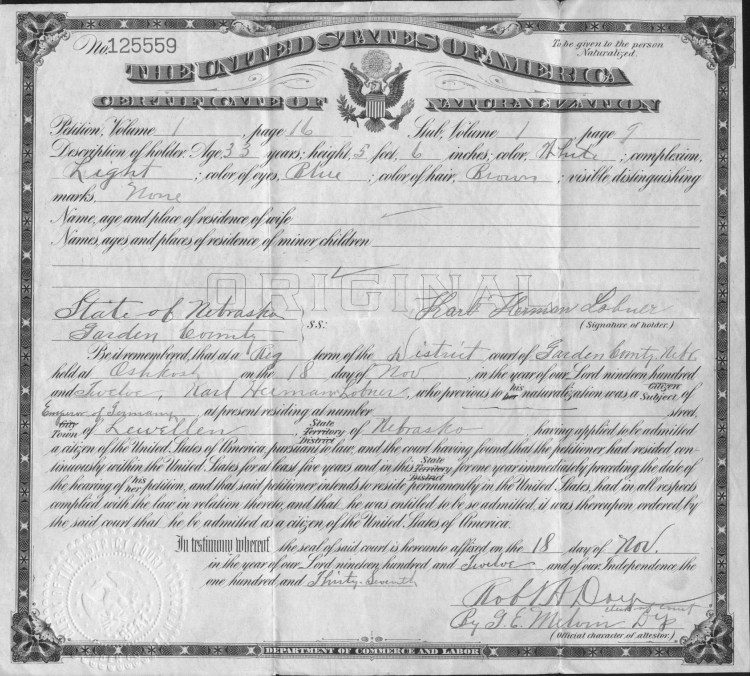 No. 125559
To be given to the person Naturalized.
THE UNITED STATES OF AMERICA
CERTIFICATE OF NATURALIZATION
Petition, Volume 1, page 16 Stub, Volume 1, page 9
Description of holder: Age, 33 years; height, 5 feet, 6 inches; color, White; complexion,
Light; color of eyes, Blue; color of hair, Brown; visible distinguishing
marks, None
Name, age and place of residence of wife
Names, ages and places of residence of minor children
ORIGINAL
State of Nebraska
Garden County
SS:
Karl Herman Lobner
(Signature of holder.)
Be it remembered, that at a Reg term of the District court of Garden County, Nebr.
held at Oshkosh on the 18 day of Nov in the year of our Lord nineteen hundred
and Twelve, Karl Herman Lobner, who previous to his her naturalization was a citizen Subject of
Emperor of Germany, at present residing at number street,
City Town of Lewellen State Territory District of Nebraska, having applied to be admitted
a citizen of the United States of America, pursuant to law, and the court having found that the petitioner had resided con-
tinuously within the United States for at least five years and in this State Territory District for one year immediately preceding the date of
the hearing of his her petition, and that said petitioner intends to reside permanently in the United States, had in all respects
complied with the law in relation thereto, and that he was entitled to be so admitted, it was thereupon ordered by
the said court that he be admitted as a citizen of the United States of America.
In testimony whereof the seal of said court is hereunto affixed on the 18 day of Nov.
in the year of our Lord nineteen hundred and Twelve and of our Independence the
one hundred and Thirty-Seventh
Robt A Day
Clerk of Court
By G. E. Melvin Dep
(Official character of attestor.)
DEPARTMENT OF COMMERCE AND LABOR